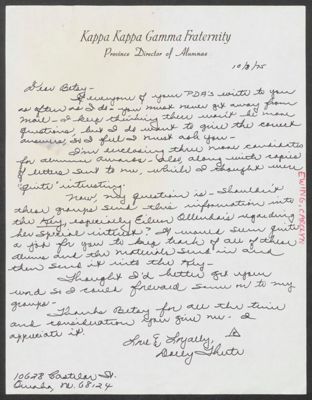 Kappa Kappa Gamma Fraternity
Province Director of Alumnae
10/8/75
Dear Betsy -
If everyone of your PDA's write to you
as often as I do - you must never get away from
mail - I keep thinking there won't be more
questions, but I do want to give the correct
answers, so I feel I must ask you -
I'm enclosing three more candidates
for alumnae awards - Also, along with copies
of letters sent to me, which I thought were
"quite" interesting.
Now, my question is - Shouldn't
these groups send this information into
the Key, especially Eileen regarding
her special interest? It would seem quite
a job for you to keep track of all of these
items and the materials sent in and
then send it into the Key -
Thought I'd better get your
word so I could forward same on to my
groups -
Thanks Betsy for all the time
and consideration you give me - I
appreciate it.
Love & Loyalty,
10628 Castelar St.
Omaha, Ne. 68124
EWING, CAROLYN